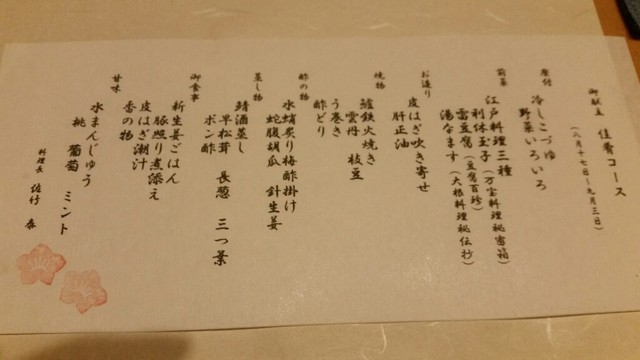 御献立 佳肴コース
(八月十七日~九月三日)
座付
冷しこづゆ
野菜いろいろ
前菜
江戸料理三種
利休玉子(万宝料理秘密箱)
雷豆腐(豆腐百珍)
湯なます(大根料理秘伝抄)
お造り
皮はぎ吹き寄せ
肝正油
焼物
鱸鉄火焼き
雲丹 枝豆
う巻き
酢どり
酢の物
水蛸炙り梅酢掛け
蛇腹胡瓜 針生姜
蒸し物
鯖酒蒸し
早松茸 長葱 三つ葉
ポン酢
御食事
新生姜ごはん
豚照り煮添え
皮はぎ潮汁
香の物
甘味
水まんじゅう
桃 葡萄 ミント
料理長 佐竹